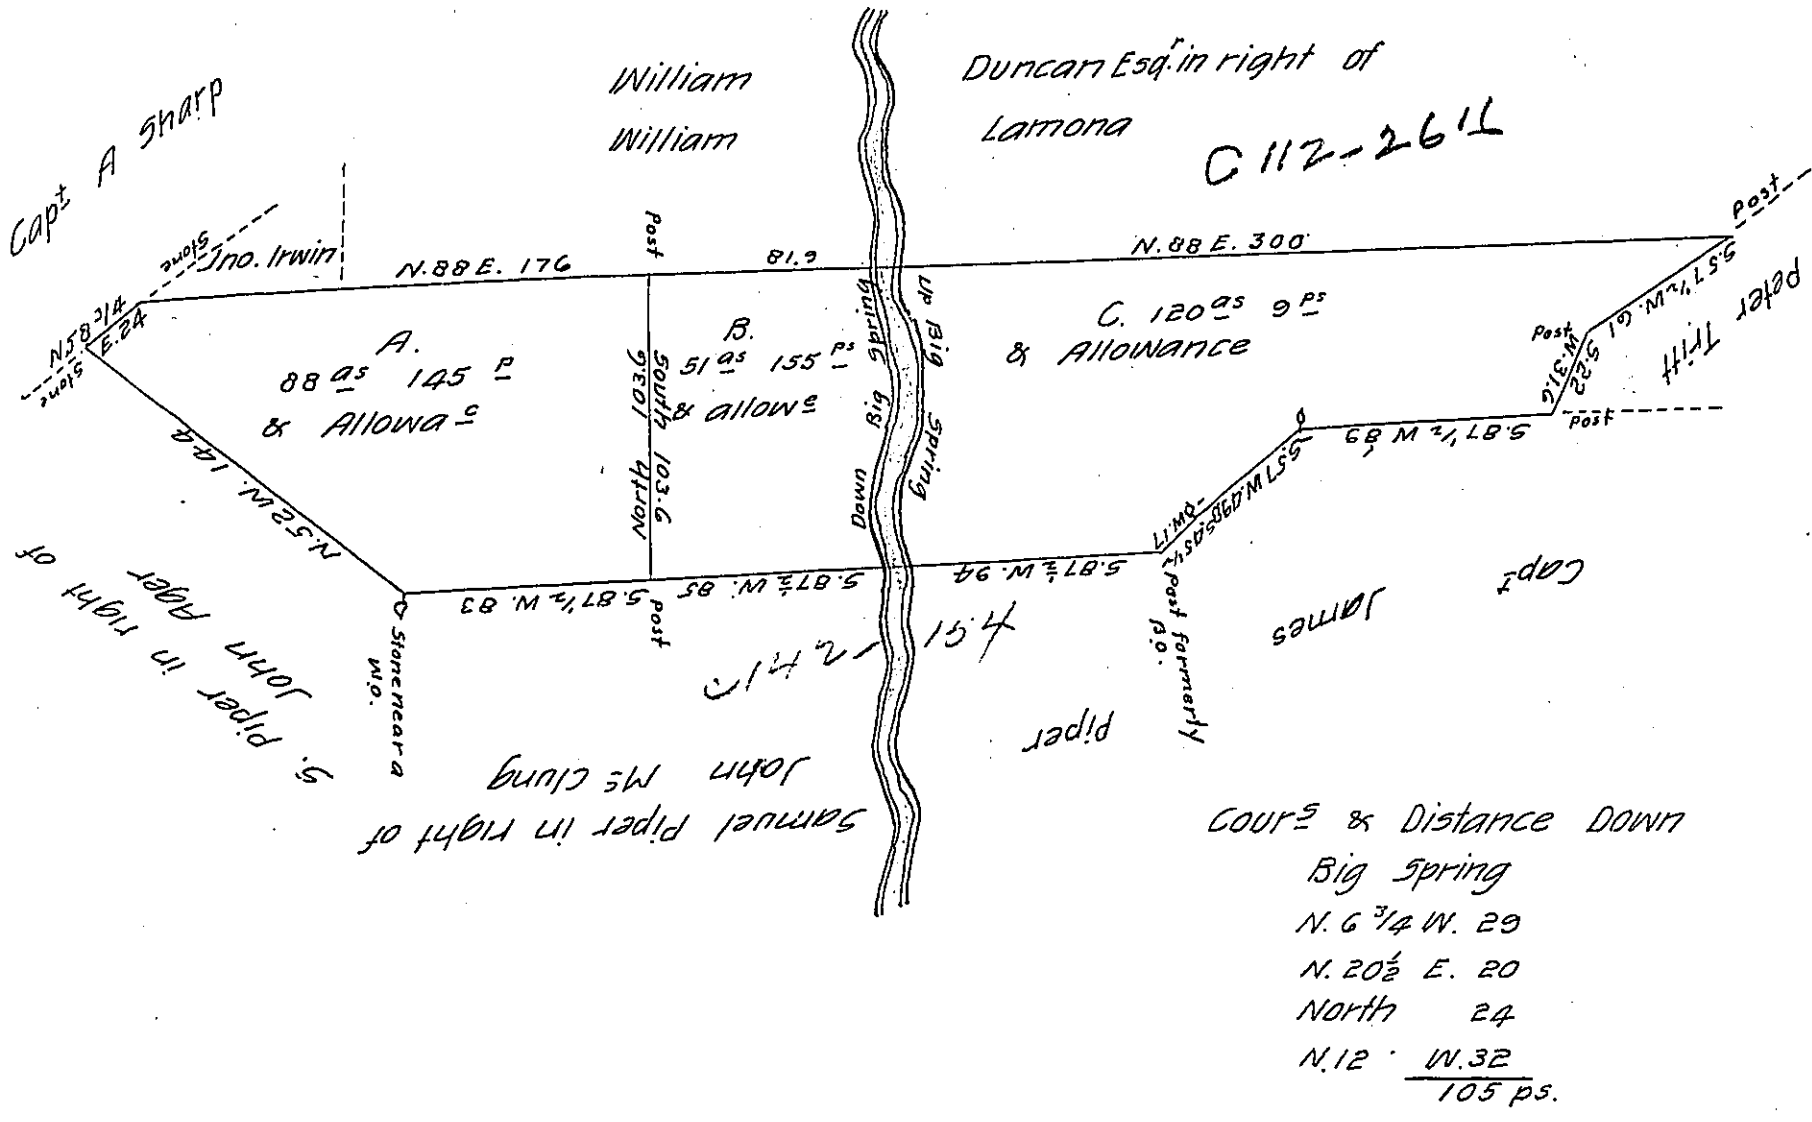 William Duncan Esqr. in right of
William Lamona
C 112-261
Capt A Sharp
Stone
Jno. Irwin
N.88 E. 176
Post
81.9
N.88 E. 300
Post
N 58 3/4
E. 24
Stone
A.
88 as 145 p
& Allowa c
South 103.6
North 103.6
B.
51 as 155 ps
& allow e
Down Big Spring
Up Big Spring
C. 120 as 9 ps
& Allowance
S.57 1/2 W. 61
Peter Tritt
Post
S.22
W.31.6
Post
S.87 1/2 W 89
S.57 W.49
W.17
N.52 W. 144
S.87 1/2 W. 83
Post
S.87 1/2 W. 85
S.87 1/2 W. 94
Post formerly
B.O.
Stone near a
W.O.
S. Piper in right of
John Ager
Samuel Piper in right of
John Mc Clung
Capt James Piper
Cours & Distance Down
Big Spring
N. 6 3/4 W. 29
N. 20 1/2 E. 20
North 24
N. 12 W. 32
105 ps.